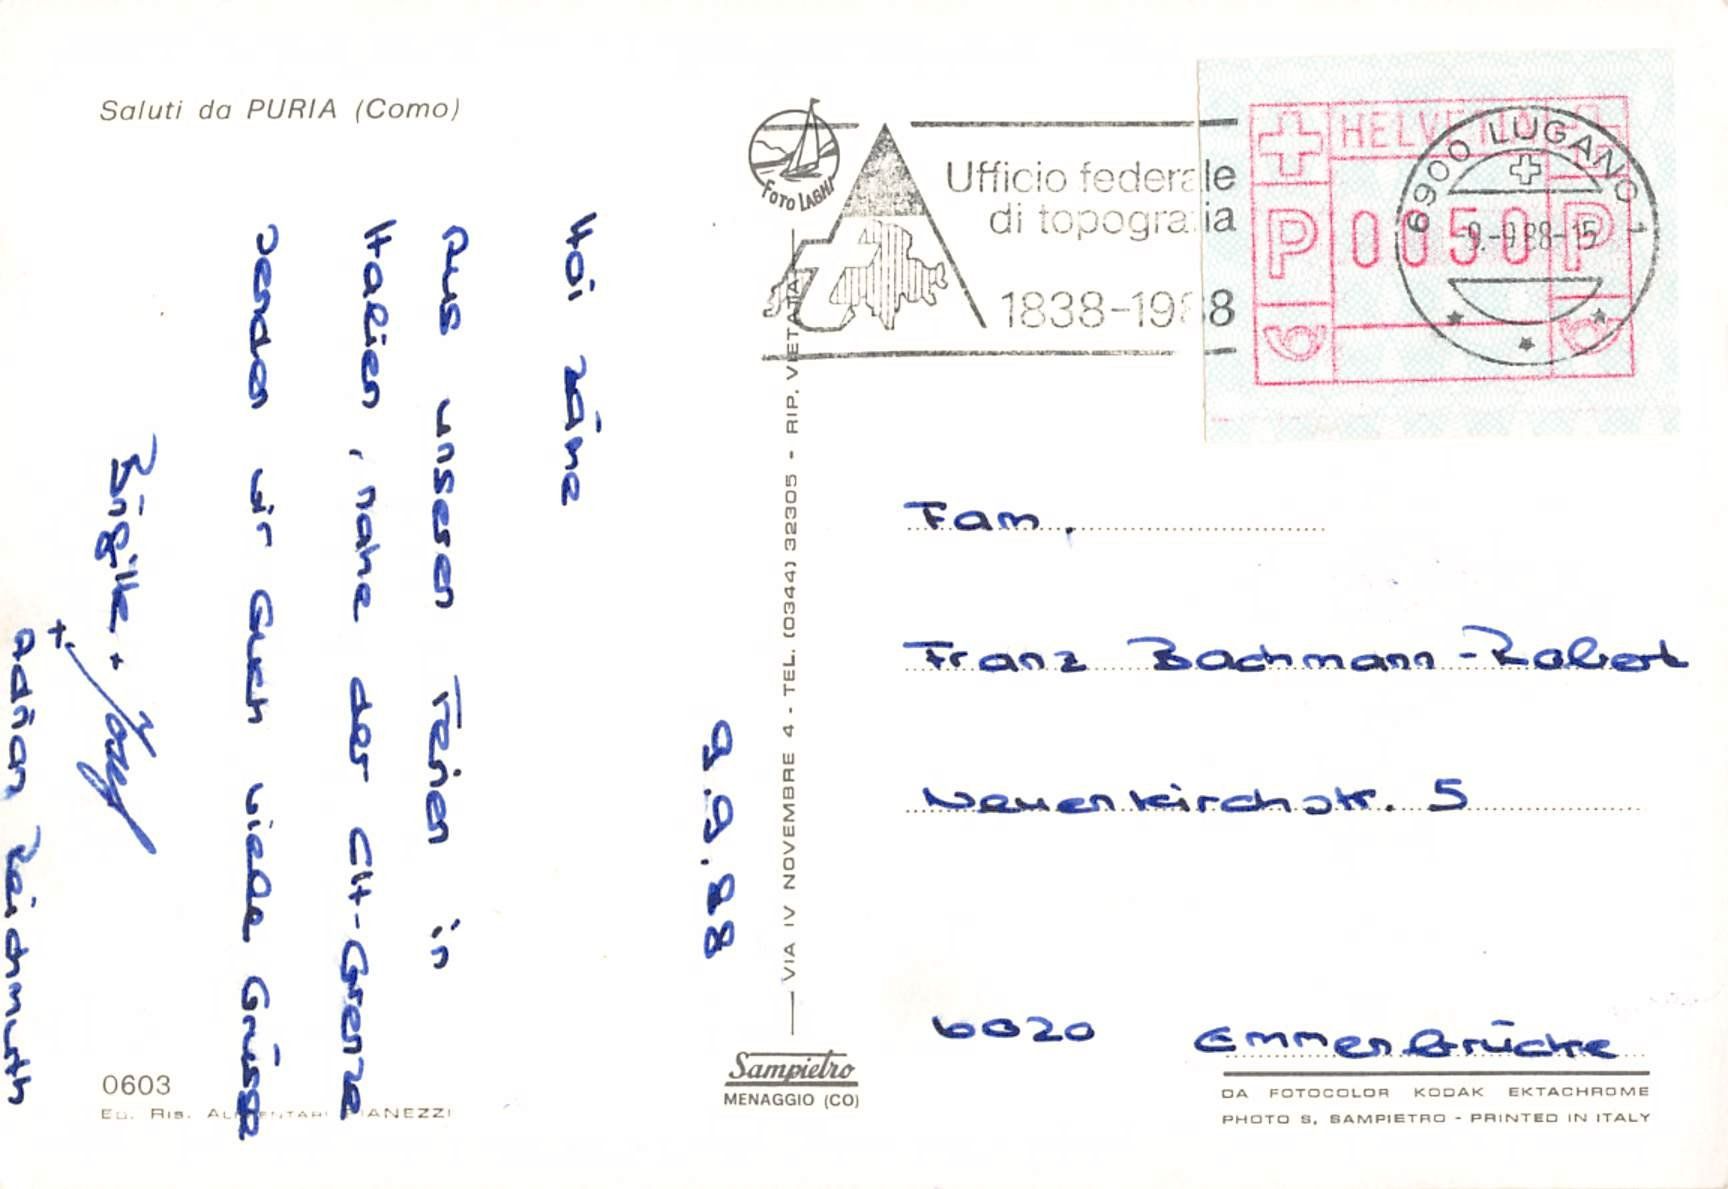 Saluti da PURIA (Como)
9.9.88
Hoi zäme
Aus unseren Ferien in
Italien, nahe der CH-Grenze
senden wir Euch viele Grüsse
Brigitte +
+ Adrian Reichmuth
0603
ED. RIS. ALIMENTARI PIANEZZI
FOTO LAGHI
VIA IV NOVEMBRE 4 - TEL. (0344) 32305 - RIP. VIETATA
Sampietro
MENAGGIO (CO)
Ufficio federale
di topografia
1838-1988
HELVETIA
P 0050 P
6900 LUGANO 1
-9.-9.88-15
Fam.
Franz Bachmann-Robert
Neuenkirchstr. 5
6020 Emmenbrücke
DA FOTOCOLOR KODAK EKTACHROME
PHOTO S. SAMPIETRO - PRINTED IN ITALY